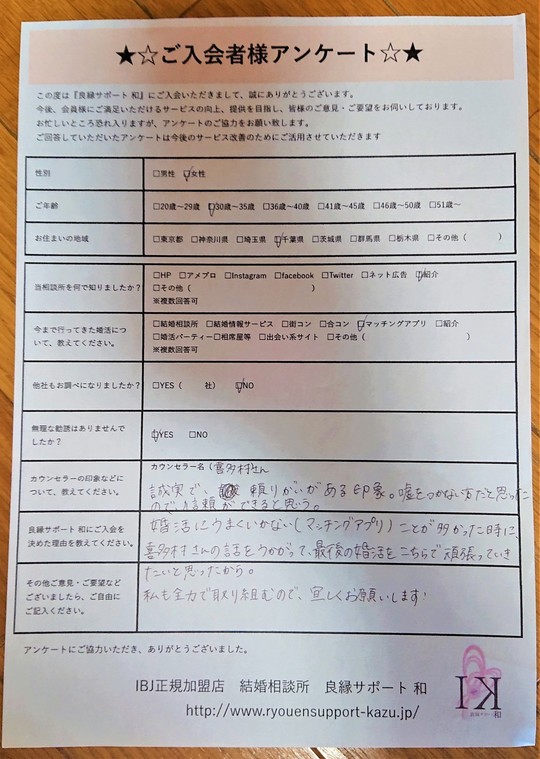 ★☆ご入会者様アンケート☆★
この度は『良縁サポート 和』にご入会いただきまして、誠にありがとうございます。
今後、会員様にご満足いただけるサービスの向上、提供を目指し、皆様のご意見・ご要望をお伺いしております。
お忙しいところ恐れ入りますが、アンケートのご協力をお願い致します。
ご回答していただいたアンケートは今後のサービス改善のためにご活用させていただきます
性別
□男性 ☑女性
ご年齢
□20歳～29歳 ☑30歳～35歳 □36歳～40歳 □41歳～45歳 □46歳～50歳 □51歳～
お住まいの地域
□東京都 □神奈川県 □埼玉県 ☑千葉県 □茨城県 □群馬県 □栃木県 □その他（ ）
当相談所を何で知りましたか？
□HP □アメブロ □Instagram □facebook □Twitter □ネット広告 ☑紹介
□その他（ ）
※複数回答可
今まで行ってきた婚活につ
いて、教えてください。
□結婚相談所 □結婚情報サービス □街コン □合コン ☑マッチングアプリ □紹介
□婚活パーティー □相席屋等 □出会い系サイト □その他（ ）
※複数回答可
他社もお調べになりましたか？
□YES（ 社） ☑NO
無理な勧誘はありませんで
したか？
☑YES □NO
カウンセラーの印象などに
ついて、教えてください。
カウンセラー名（喜多村さん
誠実で、頼りがいがある印象。嘘をつかない方だと思った
ので、信頼ができると思う。
良縁サポート 和にご入会を
決めた理由を教えてください。
婚活にうまくいかない（マッチングアプリ）ことが多かった時に、
喜多村さんの話をうかがって、最後の婚活をこちらで頑張っていき
たいと思ったから。
その他ご意見・ご要望など
ございましたら、ご自由に
ご記入ください。
私も全力で取り組むので、宜しくお願いします!
アンケートにご協力いただき、ありがとうございました。
IBJ正規加盟店 結婚相談所 良縁サポート 和
http://www.ryouensupport-kazu.jp/